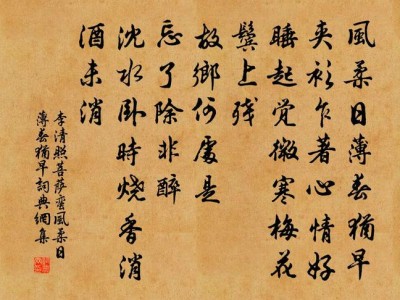 風柔日薄春猶早
夹衫乍著心情好
睡起觉微寒梅花
鬓上残
故鄉何處是
忘了除非醉
沈水卧時燒香消
酒未消
李清照菩薩蛮風柔日
薄春猶早詞典網集